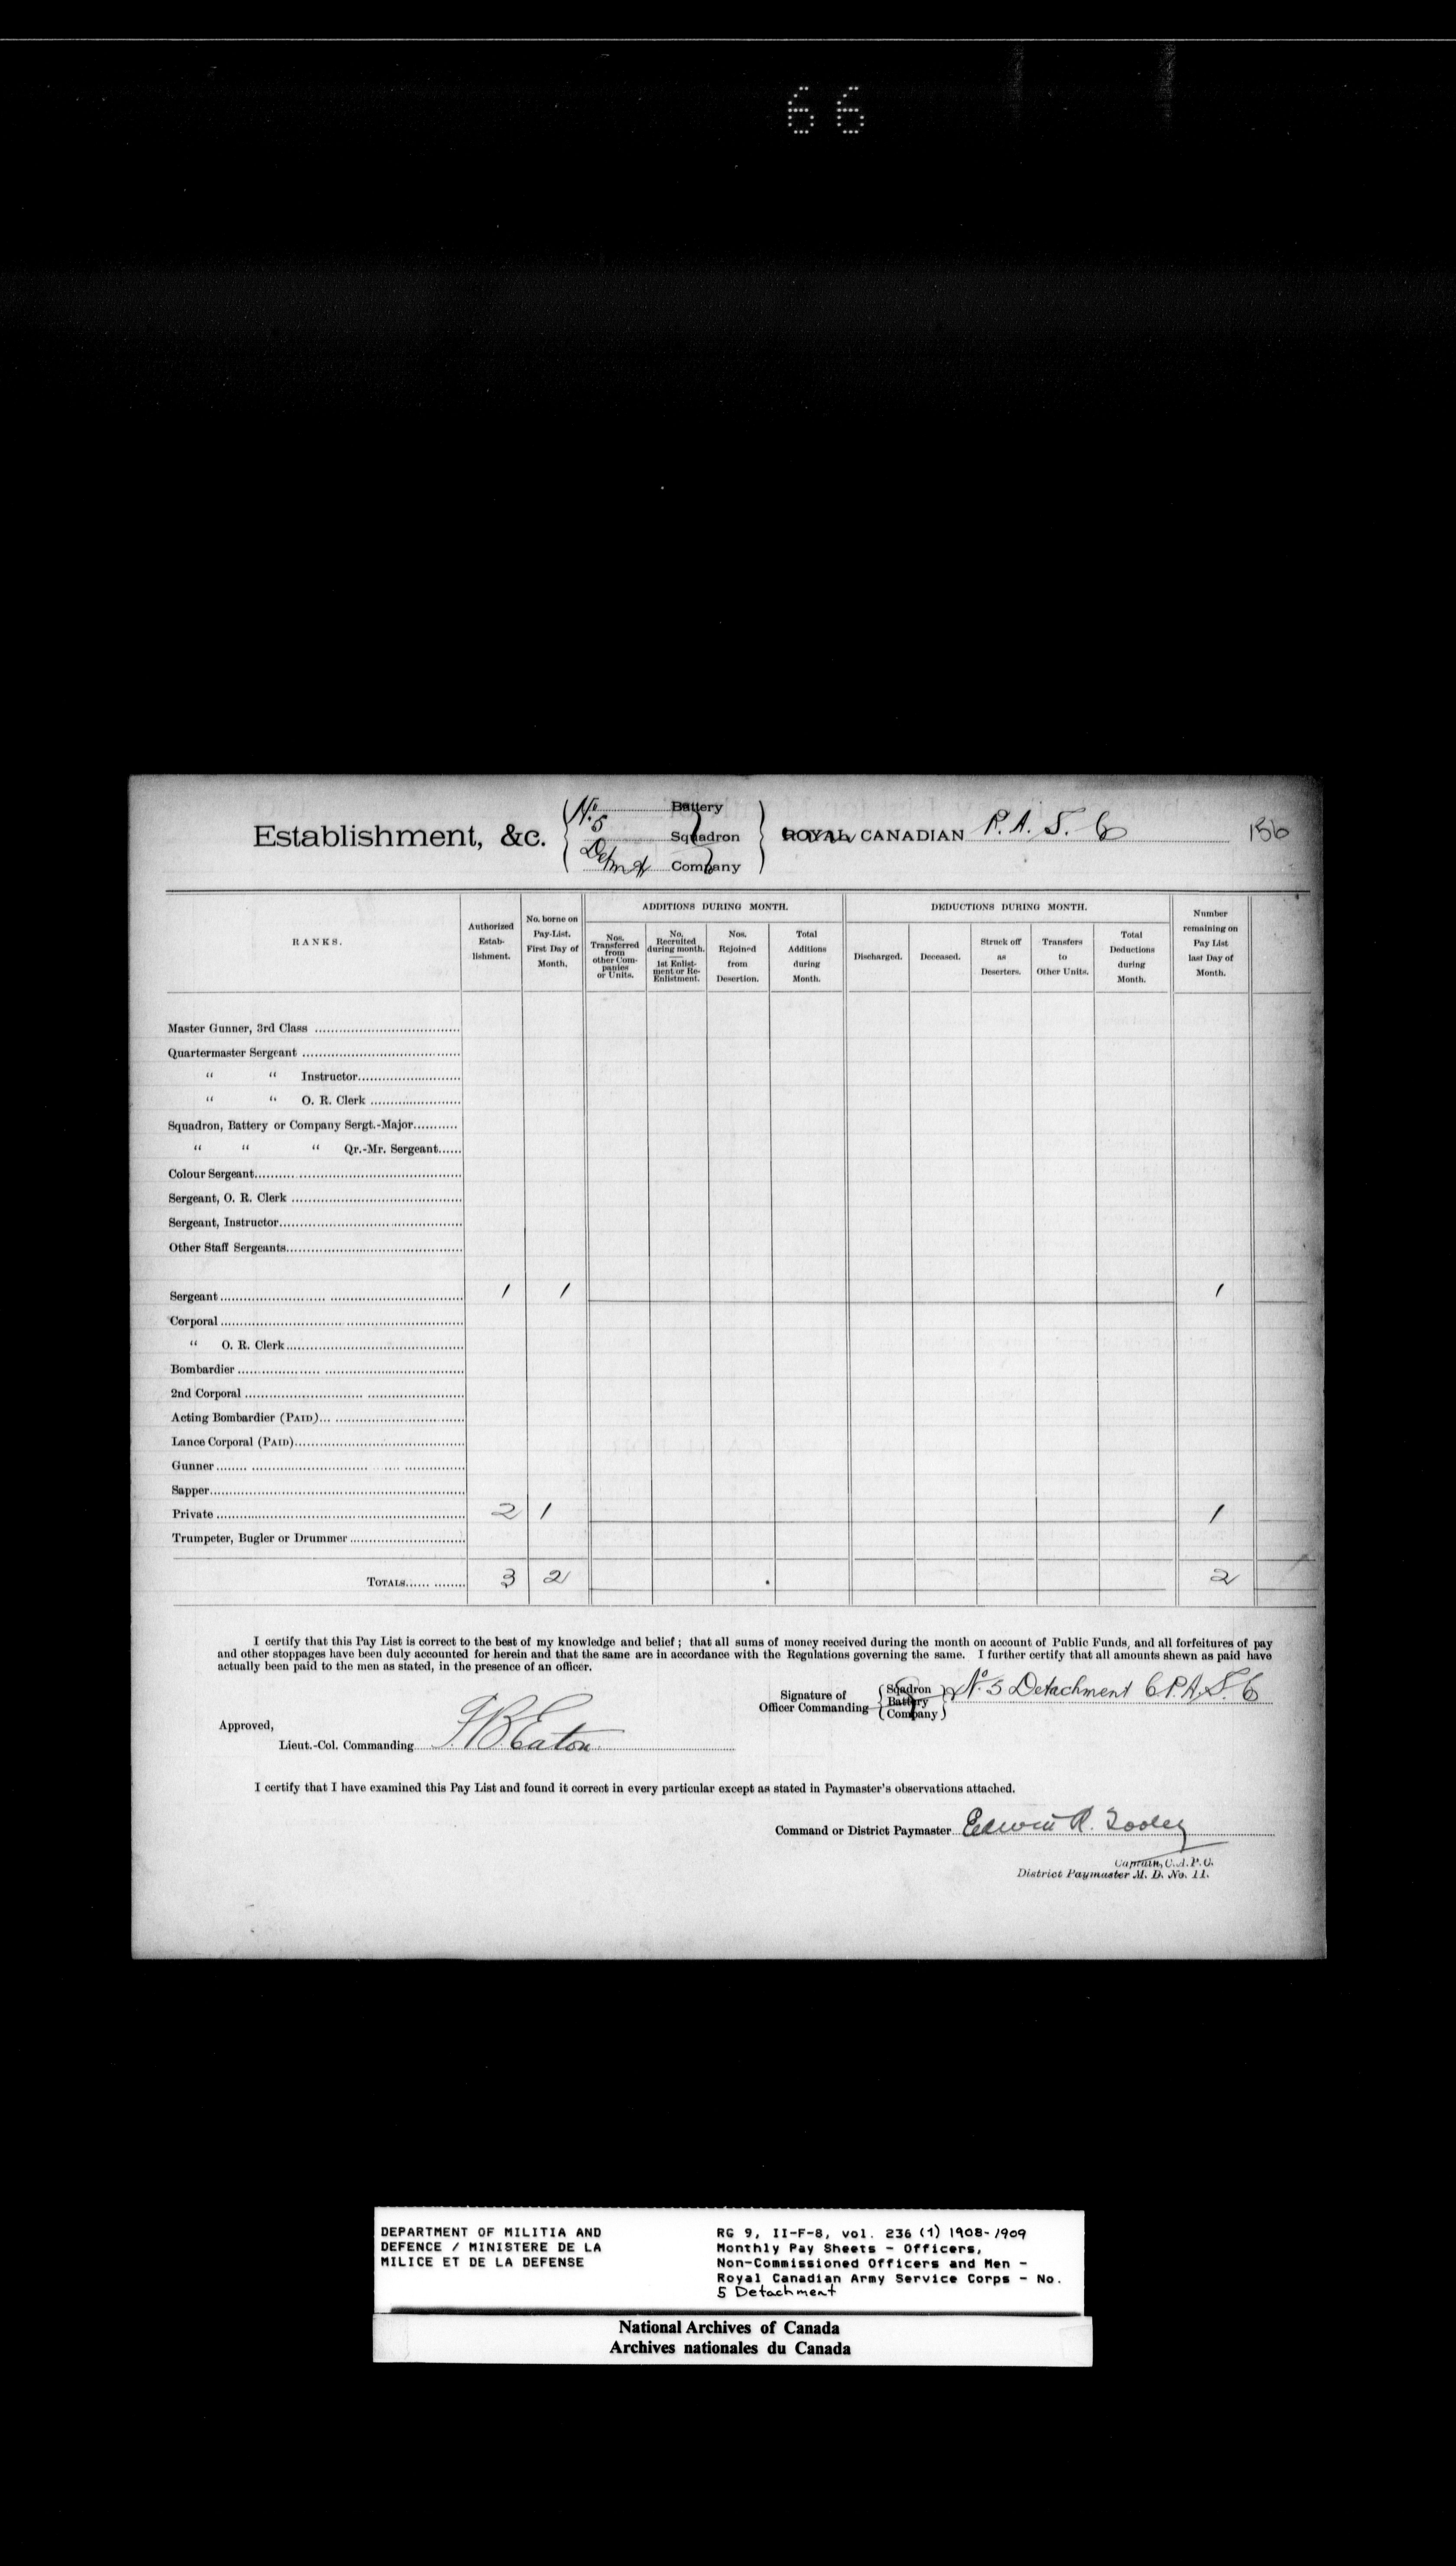 66
Establishment, &c. No. 5 Detmt Battery Squadron Company ROYAL CANADIAN P. A. S. C 156
RANKS. Authorized Estab-lishment. No. borne on Pay-List. First Day of Month. ADDITIONS DURING MONTH. DEDUCTIONS DURING MONTH. Number remaining on Pay List last Day of Month.
Nos. Transferred from other Com-panies or Units. No. Recruited during month. 1st Enlist-ment or Re-Enlistment. Nos. Rejoined from Desertion. Total Additions during Month. Discharged. Deceased. Struck off as Deserters. Transfers to Other Units. Total Deductions during Month.
Master Gunner, 3rd Class
Quartermaster Sergeant
" " Instructor
" " O. R. Clerk
Squadron, Battery or Company Sergt.-Major
" " " Qr.-Mr. Sergeant
Colour Sergeant
Sergeant, O. R. Clerk
Sergeant, Instructor
Other Staff Sergeants
Sergeant 1 1 1
Corporal
" O. R. Clerk
Bombardier
2nd Corporal
Acting Bombardier (PAID)
Lance Corporal (PAID)
Gunner
Sapper
Private 2 1 1
Trumpeter, Bugler or Drummer
TOTALS 3 2 2
I certify that this Pay List is correct to the best of my knowledge and belief; that all sums of money received during the month on account of Public Funds, and all forfeitures of pay
and other stoppages have been duly accounted for herein and that the same are in accordance with the Regulations governing the same. I further certify that all amounts shewn as paid have
actually been paid to the men as stated, in the presence of an officer.
Signature of Officer Commanding Sqadron Battery Company No. 5 Detachment C P. A. S. C
Approved,
Lieut.-Col. Commanding F B Eaton
I certify that I have examined this Pay List and found it correct in every particular except as stated in Paymaster's observations attached.
Command or District Paymaster Edwin R. Tooley
Captain, C. A. P. C.
District Paymaster M. D. No. 11.
DEPARTMENT OF MILITIA AND
DEFENCE / MINISTERE DE LA
MILICE ET DE LA DEFENSE
RG 9, II-F-8, vol. 236 (1) 1908-1909
Monthly Pay Sheets - Officers,
Non-Commissioned Officers and Men -
Royal Canadian Army Service Corps - No.
5 Detachment
National Archives of Canada
Archives nationales du Canada